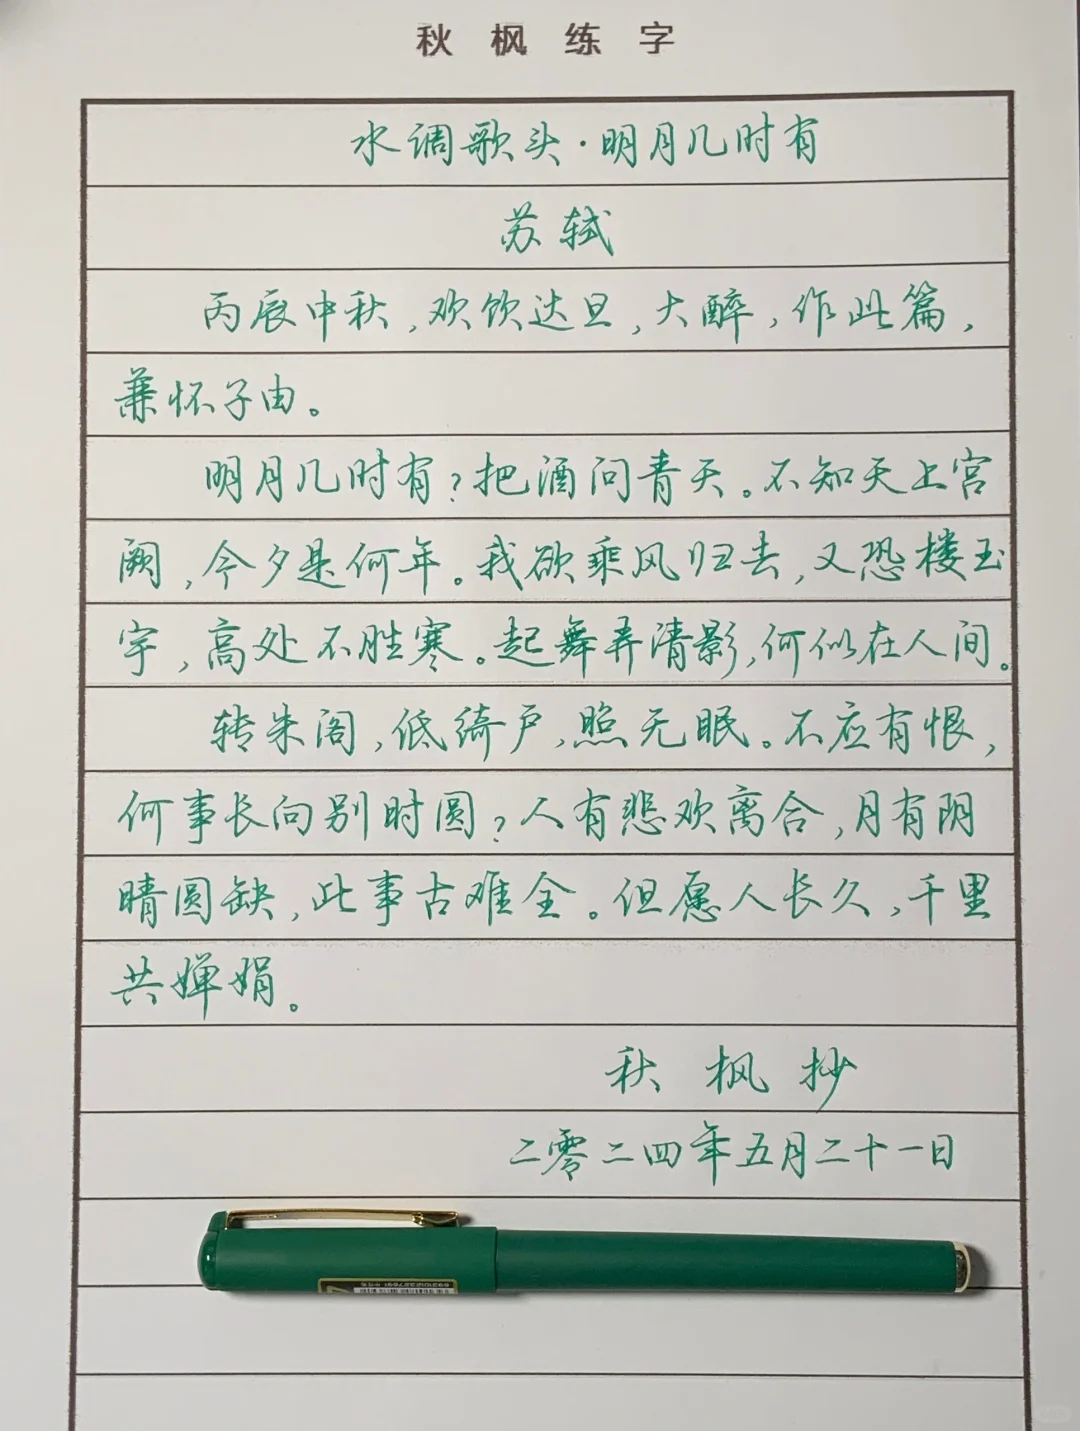 秋枫练字
水调歌头·明月几时有
苏轼
丙辰中秋，欢饮达旦，大醉，作此篇，
兼怀子由。
明月几时有？把酒问青天。不知天上宫
阙，今夕是何年。我欲乘风归去，又恐楼玉
宇，高处不胜寒。起舞弄清影，何似在人间。
转朱阁，低绮户，照无眠。不应有恨，
何事长向别时圆？人有悲欢离合，月有阴
晴圆缺，此事古难全。但愿人长久，千里
共婵娟。
秋枫抄
二零二四年五月二十一日